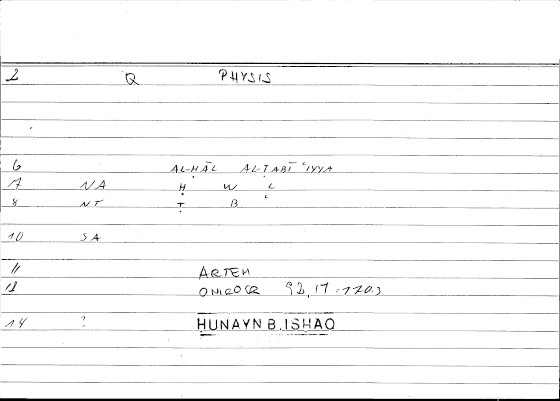 2 Q PHYSIS
6 AL-ḤĀL AL-ṬABĪʿIYYA
7 NA Ḥ W L
8 NT Ṭ B ʿ
10 SA
11 ARTEM
12 ONIROCR 92,17 = 170.3
14 ? HUNAYN B. ISHAQ